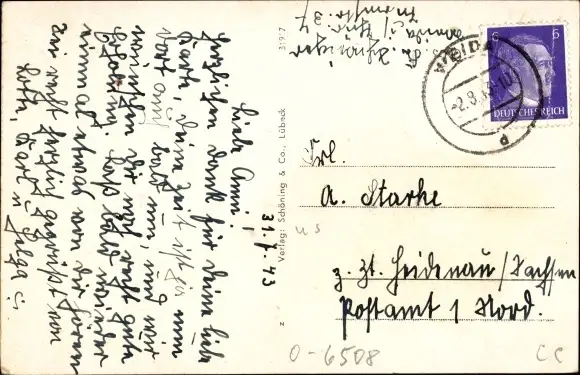 31.7.43
Liebe Anni!
Herzlichen Dank für Deine liebe
Karte, Deine Zeit ist ja nun
dort auch bald um, und wir
wünschen Dir noch recht gute
Erholung. Laß bald wieder
einmal etwas von Dir hören
Sei recht herzlich gegrüßt von
Lotte, Karl u. Helga
Verlag: Schöning & Co., Lübeck
31977
Z
WEIDA
-2.8.43
d
6 6
DEUTSCHES REICH
Frl.
A. Starke
z. Zt. Heidenau/Sachsen
Postamt 1 Nord.
us
0-6508
CC